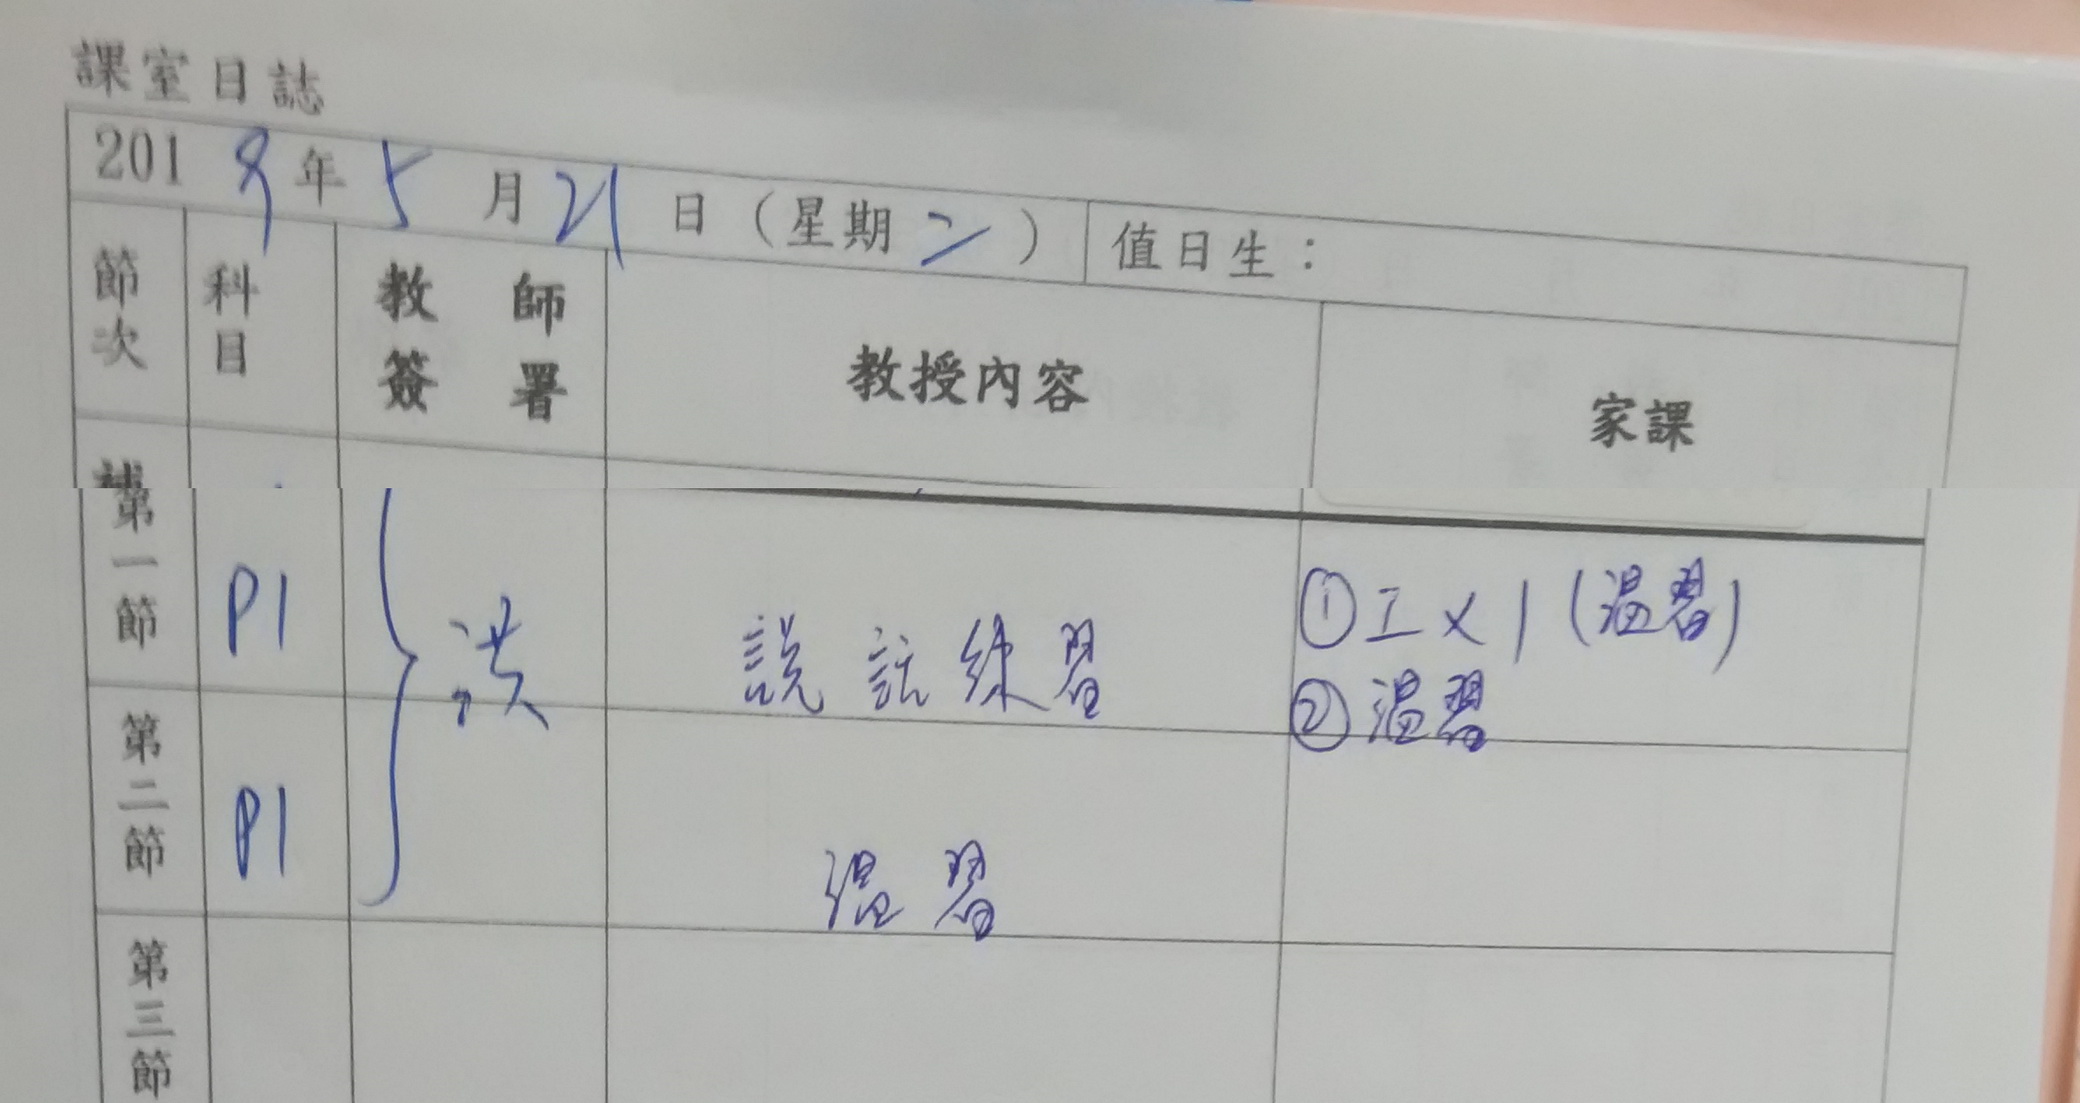 課室日誌
2019年5月21日（星期二） 值日生：
節次 科目 教師簽署 教授內容 家課
第一節 P1 洪 說話練習 ①工×1(温習)
②温習
第二節 P1 温習
第三節